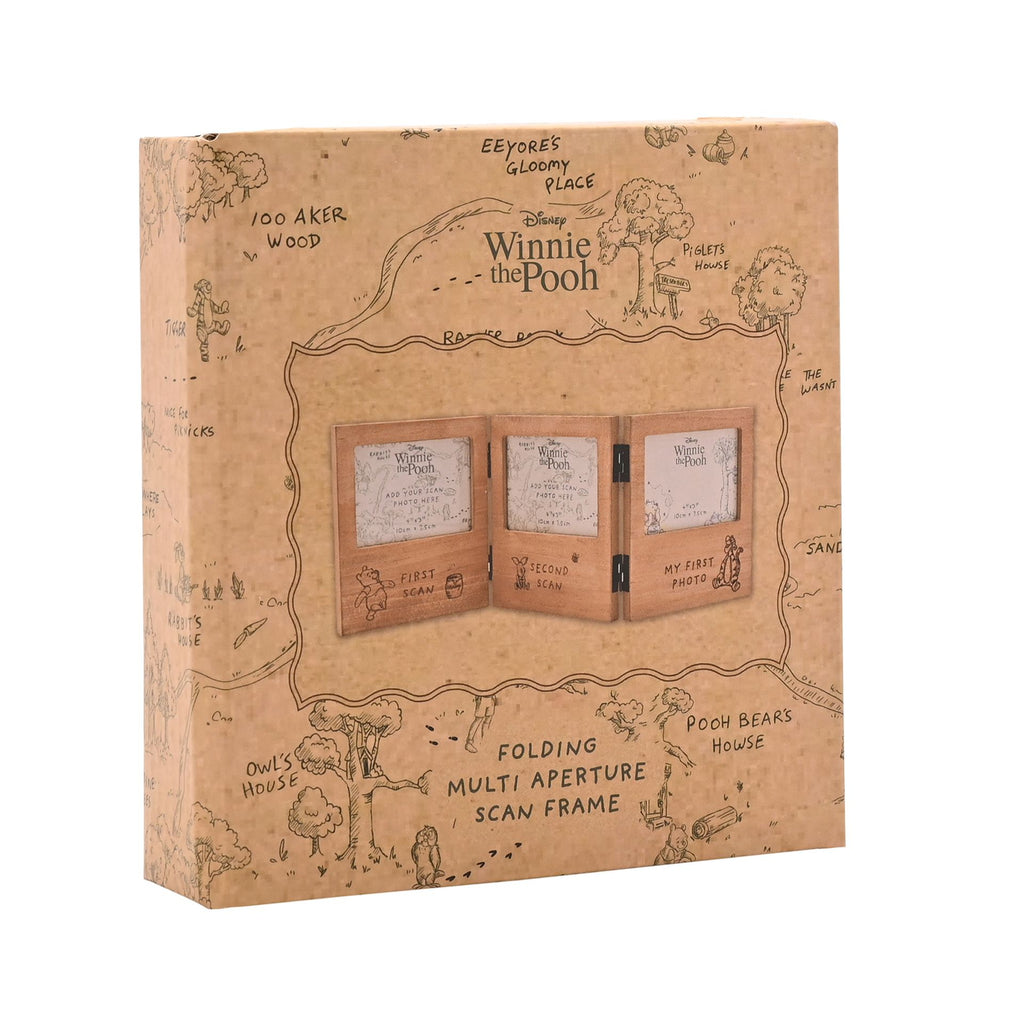 EEYORE'S
GLOOMY
PLACE
100 AKER
WOOD
Disney
Winnie
the Pooh
PIGLET'S
HOUSE
TIGGER
THE
WASN'T
NICE FOR
PIKNICKS
Disney
Winnie
the Pooh
ADD YOUR SCAN
PHOTO HERE
4"x3"
10cm x 7.5cm
FIRST
SCAN
RABBIT'S
HOUSE
Disney
Winnie
the Pooh
ADD YOUR SCAN
PHOTO HERE
4"x3"
10cm x 7.5cm
SECOND
SCAN
Disney
Winnie
the Pooh
4"x3"
10cm x 7.5cm
MY FIRST
PHOTO
SAND
RABBIT'S
HOUSE
OWL'S
HOUSE
POOH BEAR'S
HOWSE
FOLDING
MULTI APERTURE
SCAN FRAME